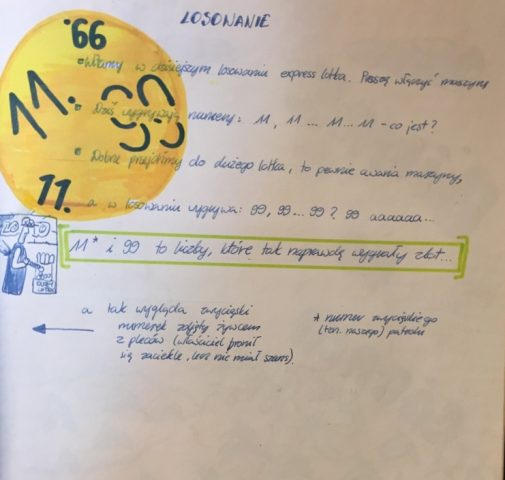 LOSOWANIE
'66
Witamy w dzisiejszym losowaniu express lotka. Proszę włączyć maszynę
11.
99
Dziś wygrywają numery: 11, 11 ... 11... 11 - co jest?
Dobrze przejdźmy do dużego lotka, to pewnie awaria maszyny,
11.
a w losowaniu wygrywa: 99, 99 ... 99? 99 aaaaaaa...
11* i 99 to liczby, które tak naprawdę wygrały zlot...
a tak wygląda zwycięski
numerek zdjęty żywcem
z pleców (właściciel bronił
się zaciekle, lecz nie miał szans).
* numer zwycięskiego
(tzn. naszego) patrolu